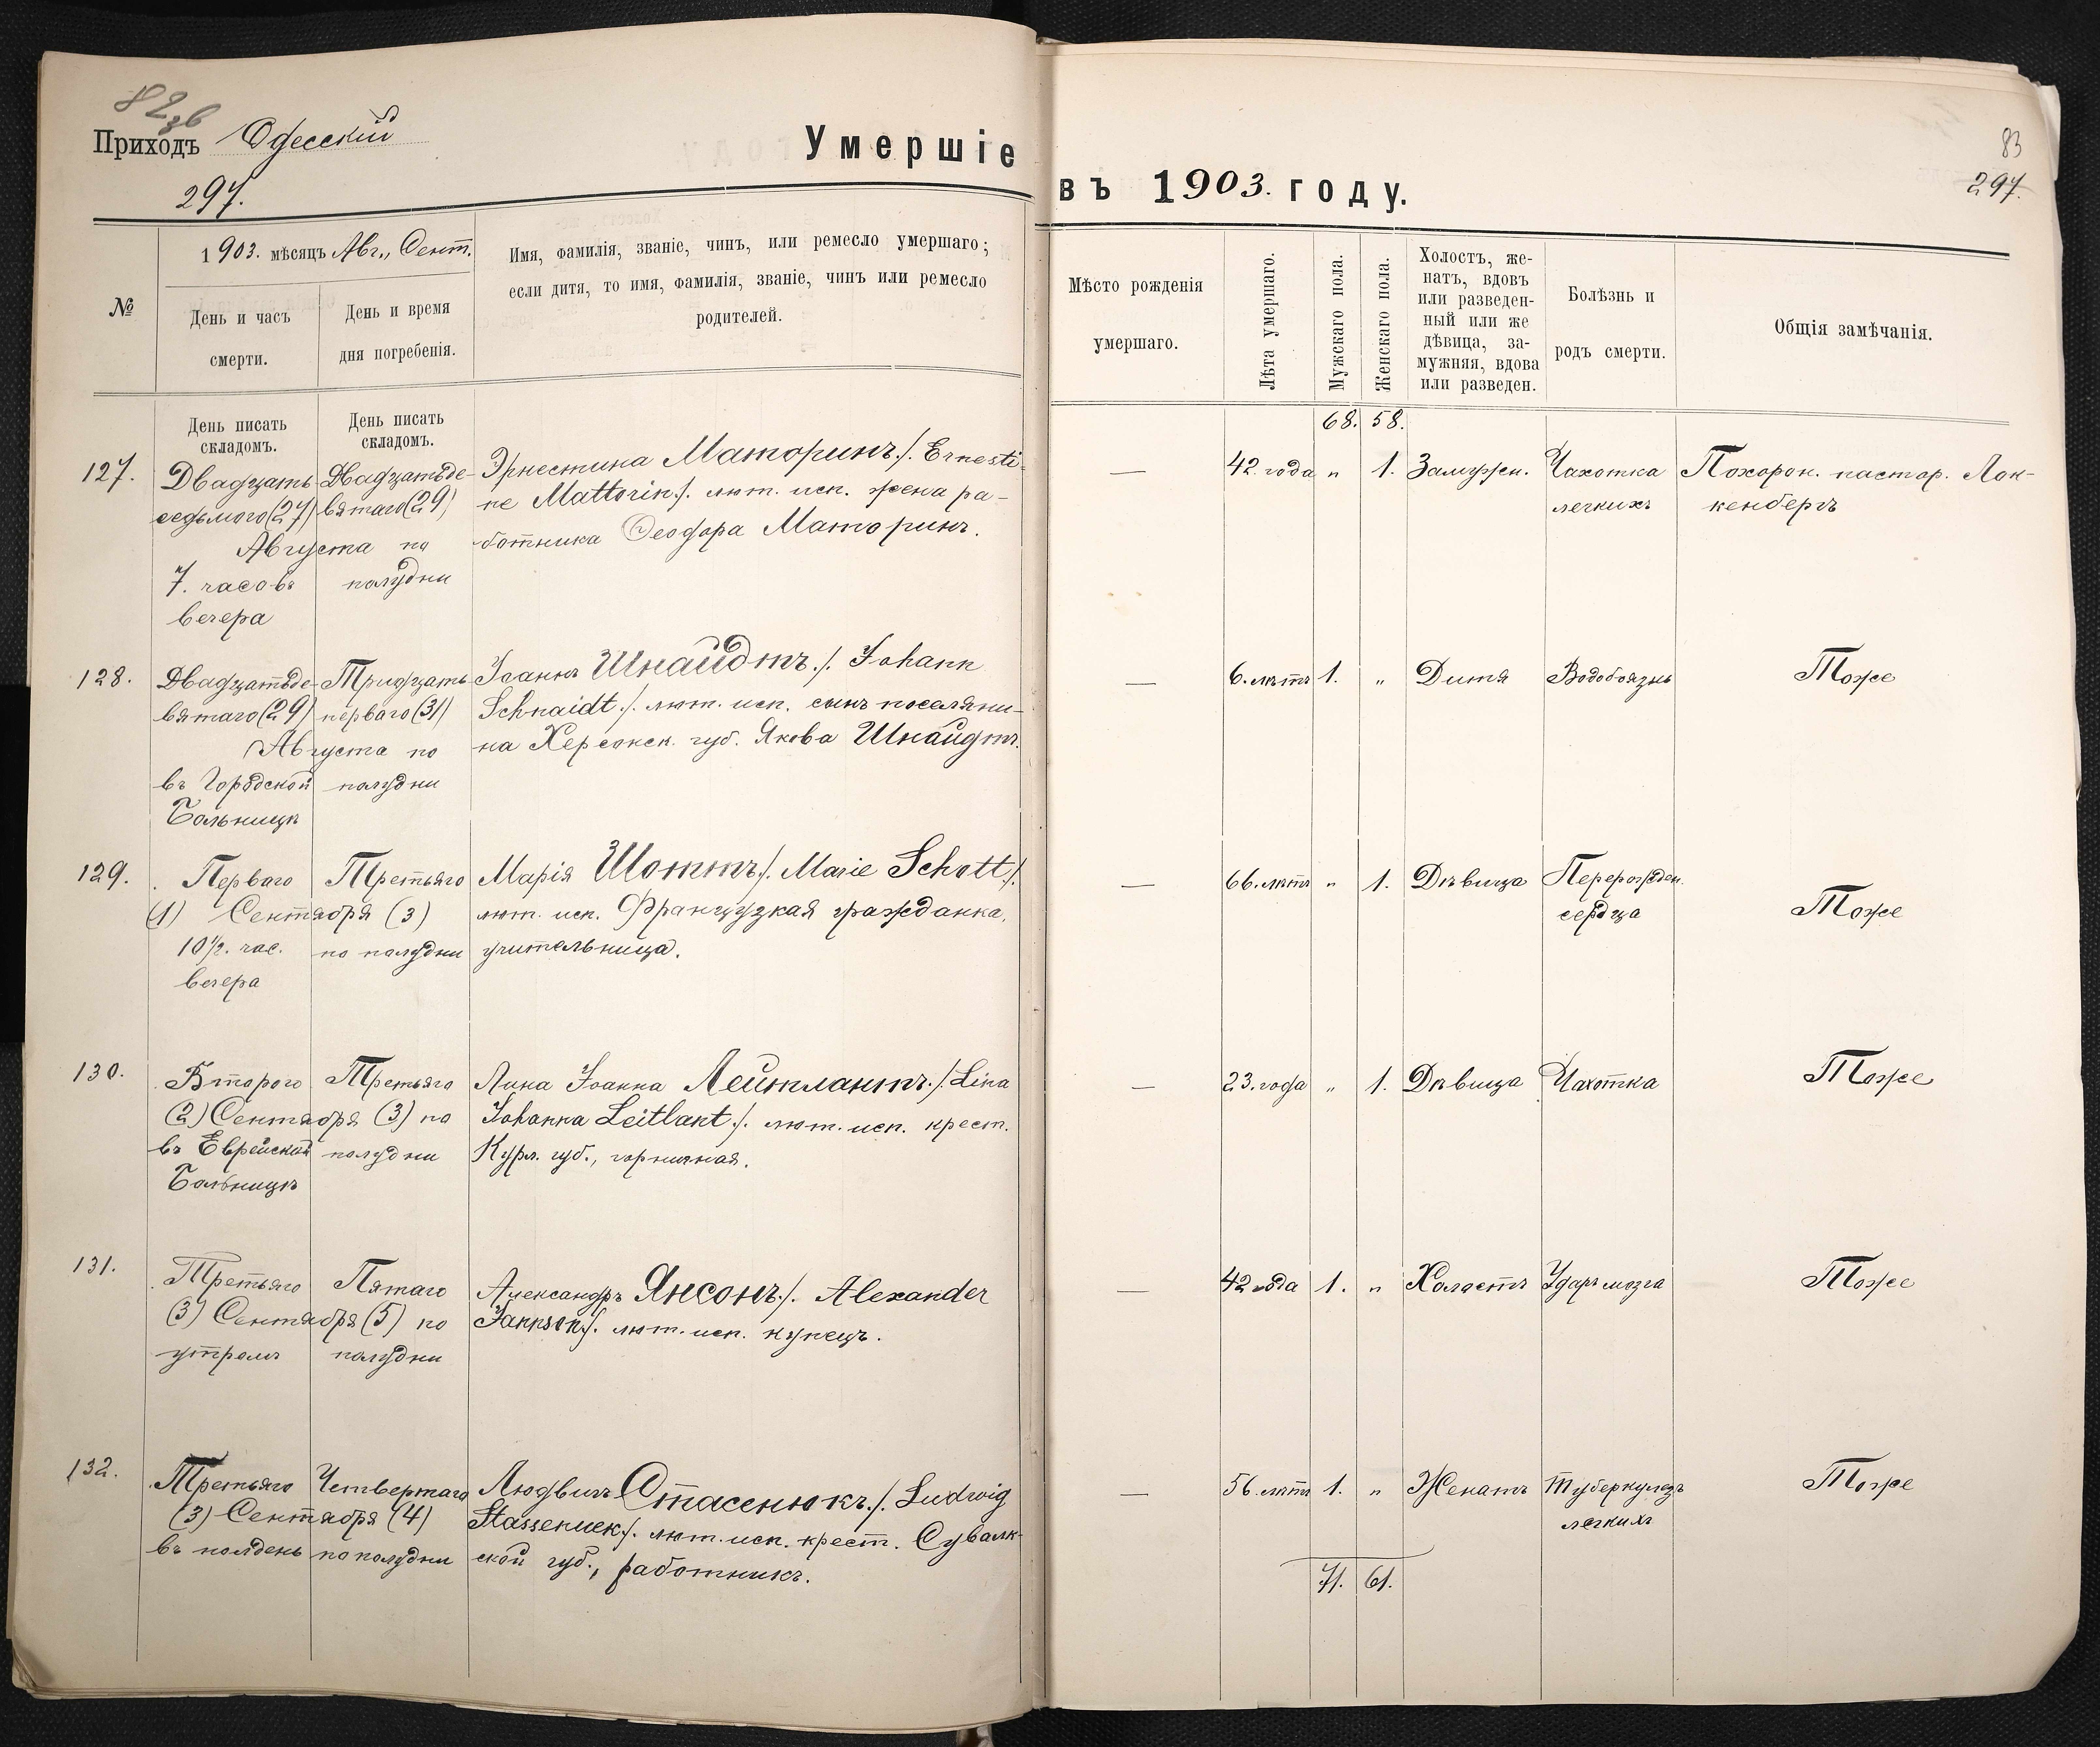 82 зв
Приходъ Одесскій
297.
Умершіе
въ 1903. году.
83
297.
№
1903. мѣсяцъ Авг., Сент.
День и часъ
смерти.
День и время
дня погребенія.
Имя, фамилія, званіе, чинъ, или ремесло умершаго;
если дитя, то имя, фамилія, званіе, чинъ или ремесло
родителей.
Мѣсто рожденія
умершаго.
Лѣта умершаго.
Мужскаго пола.
Женскаго пола.
Холостъ, же-
натъ, вдовъ
или разведен-
ный или же
дѣвица, за-
мужняя, вдова
или разведен.
Болѣзнь и
родъ смерти.
Общія замѣчанія.
День писать
складомъ.
День писать
складомъ.
68. 58.
127.
Двадцать
седьмого (27)
Двадцатьде-
вятаго (29)
Августа по
7. часовъ
вечера
полудни
Эрнестина Маторинъ ./. Ernesti-
ne Mattorin ./. лют. исп. жена ра-
ботника Ѳеодора Маторинъ.
—
42. года
"
1.
Замужн.
Чахотка
легкихъ
Похорон. пастор. Лок-
кенбергъ
128.
Двадцатьде-
вятаго (29)
Тридцать
перваго (31)
Августа по
въ Городской
Больницѣ
полудни
Іоаннъ Шнайдтъ ./. Johann
Schnaidt ./. лют. исп. сынъ поселяни-
на Херсонск. губ. Якова Шнайдтъ.
—
6. лѣтъ
1.
"
Дитя
Водобоязнь
Тоже
129.
Перваго
Третьяго
(1) Сентября (3)
10½. час.
вечера
по полудни
Марія Шоттъ ./. Marie Schott ./.
лют. исп. Французкая гражданка,
учительница.
—
66. лѣтъ
"
1.
Дѣвица
Перерожден.
сердца
Тоже
130.
Второго
Третьяго
(2) Сентября (3) по
въ Еврейской
Больницѣ
полудни
Лина Іоанна Лейтлантъ ./. Lina
Johanna Leitlant ./. лют. исп. крест.
Курл. губ., горничная.
—
23. года
"
1.
Дѣвица
Чахотка
Тоже
131.
Третьяго
Пятаго
(3) Сентября (5) по
утромъ
полудни
Александръ Янсонъ ./. Alexander
Jannson ./. лют. исп. купецъ.
—
42 года
1.
"
Холостъ
Ударъ мозга
Тоже
132.
Третьяго
Четвертаго
(3) Сентября (4)
въ полдень
по полудни
Людвигъ Стасенюкъ ./. Ludwig
Stassenuek ./. лют. исп. крест. Сувалк-
ской губ., работникъ.
—
56. лѣтъ
1.
"
Женатъ
Туберкулезъ
легкихъ
Тоже
71. 61.